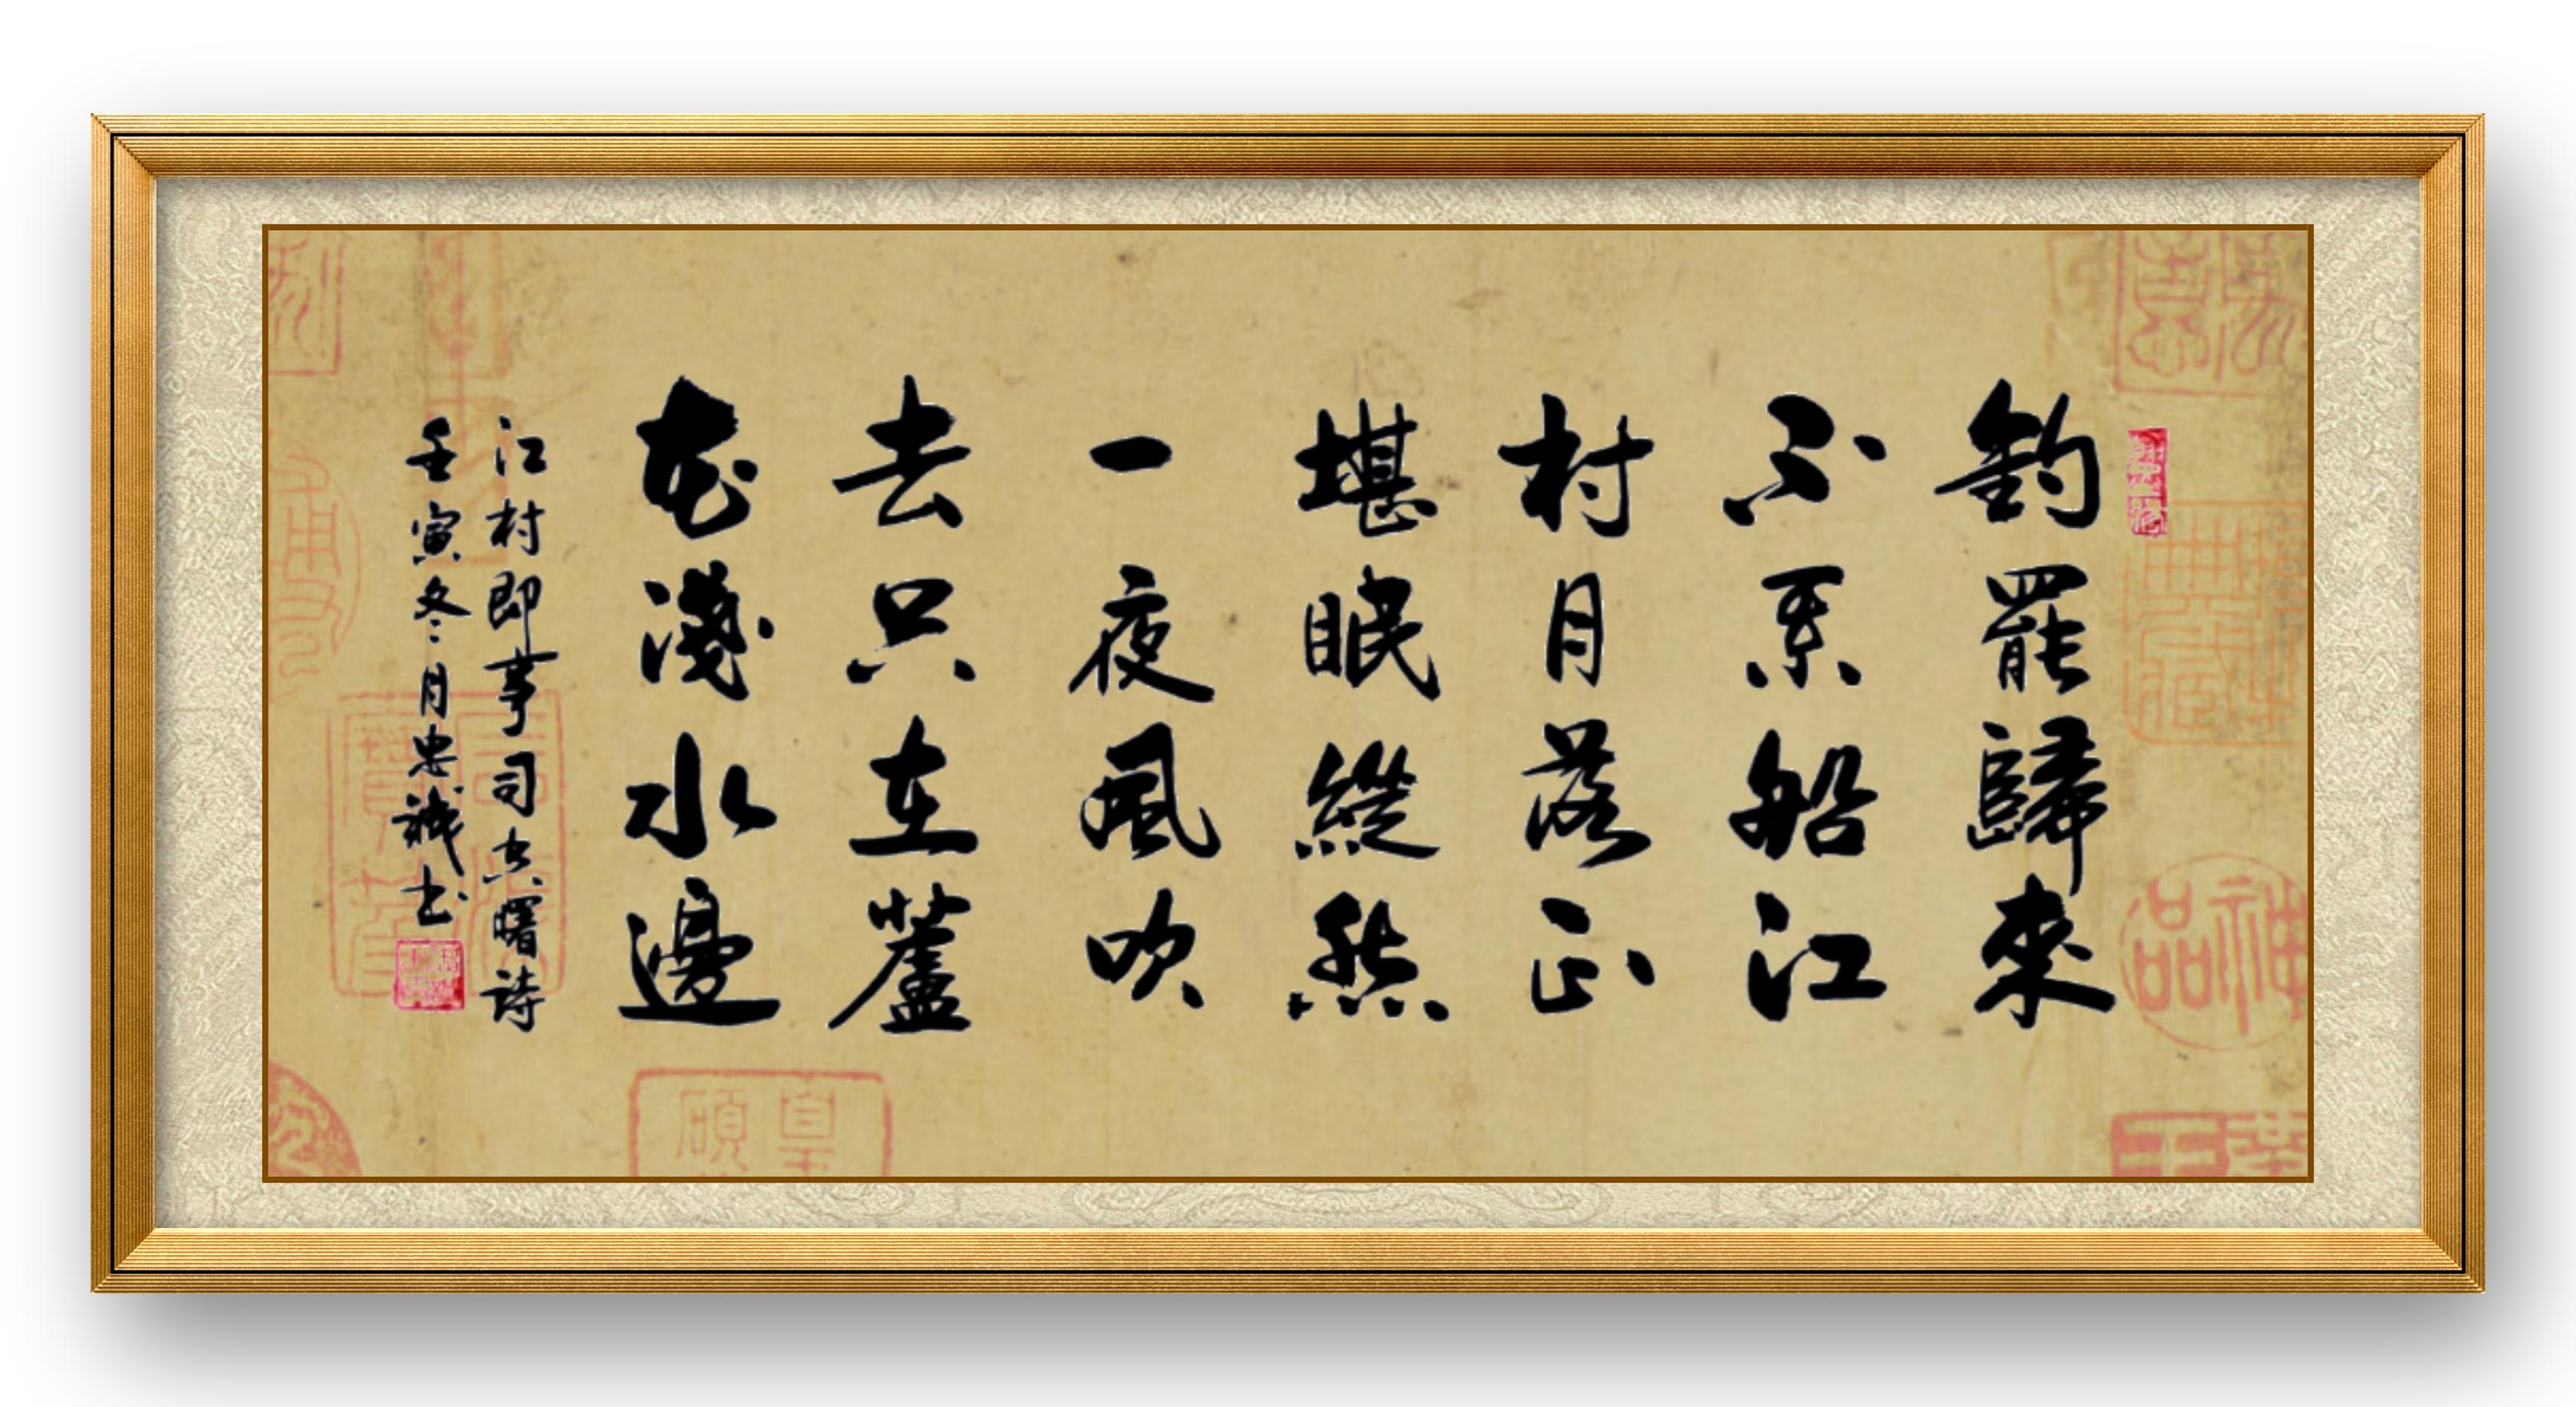 釣罷歸來
不系船江
村月落正
堪眠縱然
一夜風吹
去只在蘆
花淺水邊
江村即事司空曙詩
壬寅冬月忠誠书